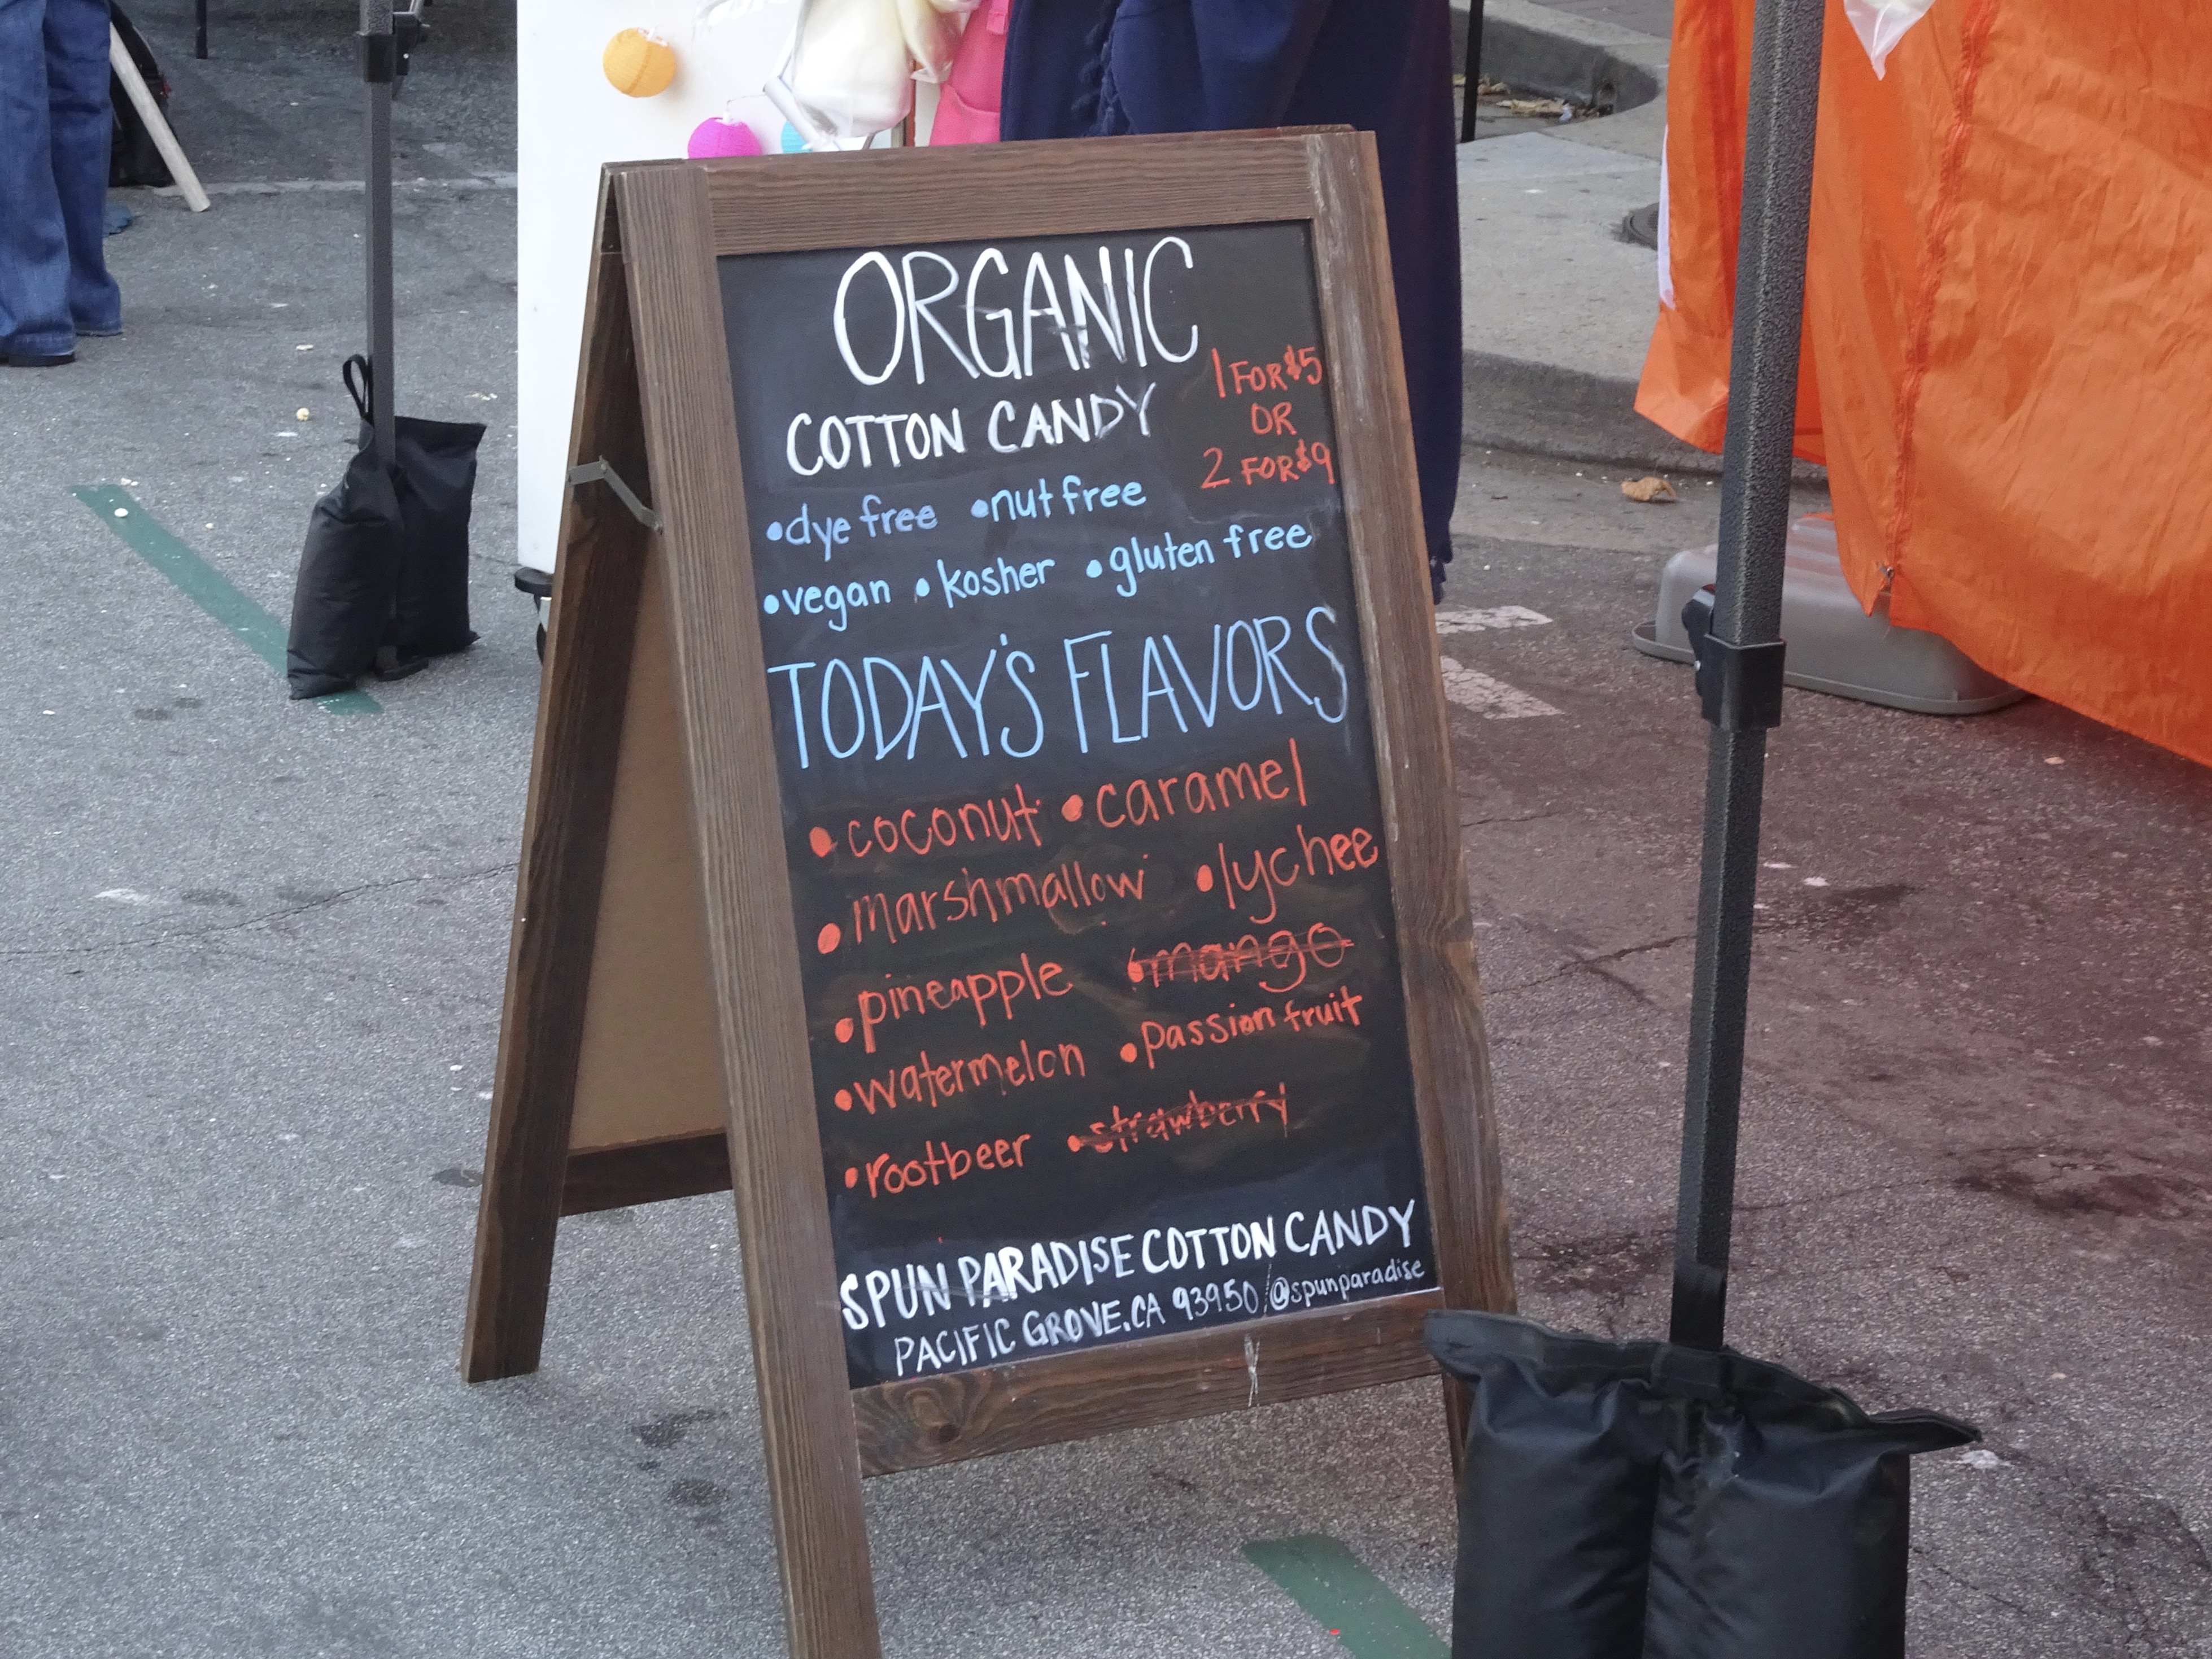 ORGANIC
COTTON CANDY
1 FOR $5
OR
2 FOR $9
•dye free •nut free
•vegan •kosher •gluten free
TODAY'S FLAVORS
•coconut •caramel
•marshmallow •lychee
•pineapple •mango
•watermelon •passion fruit
•rootbeer •strawberry
SPUN PARADISE COTTON CANDY
PACIFIC GROVE, CA 93950 / @spunparadise